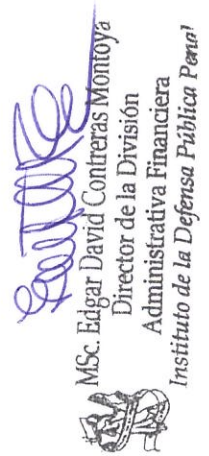 MSc. Edgar David Contreras Montoya
Director de la División
Administrativa Financiera
Instituto de la Defensa Pública Penal